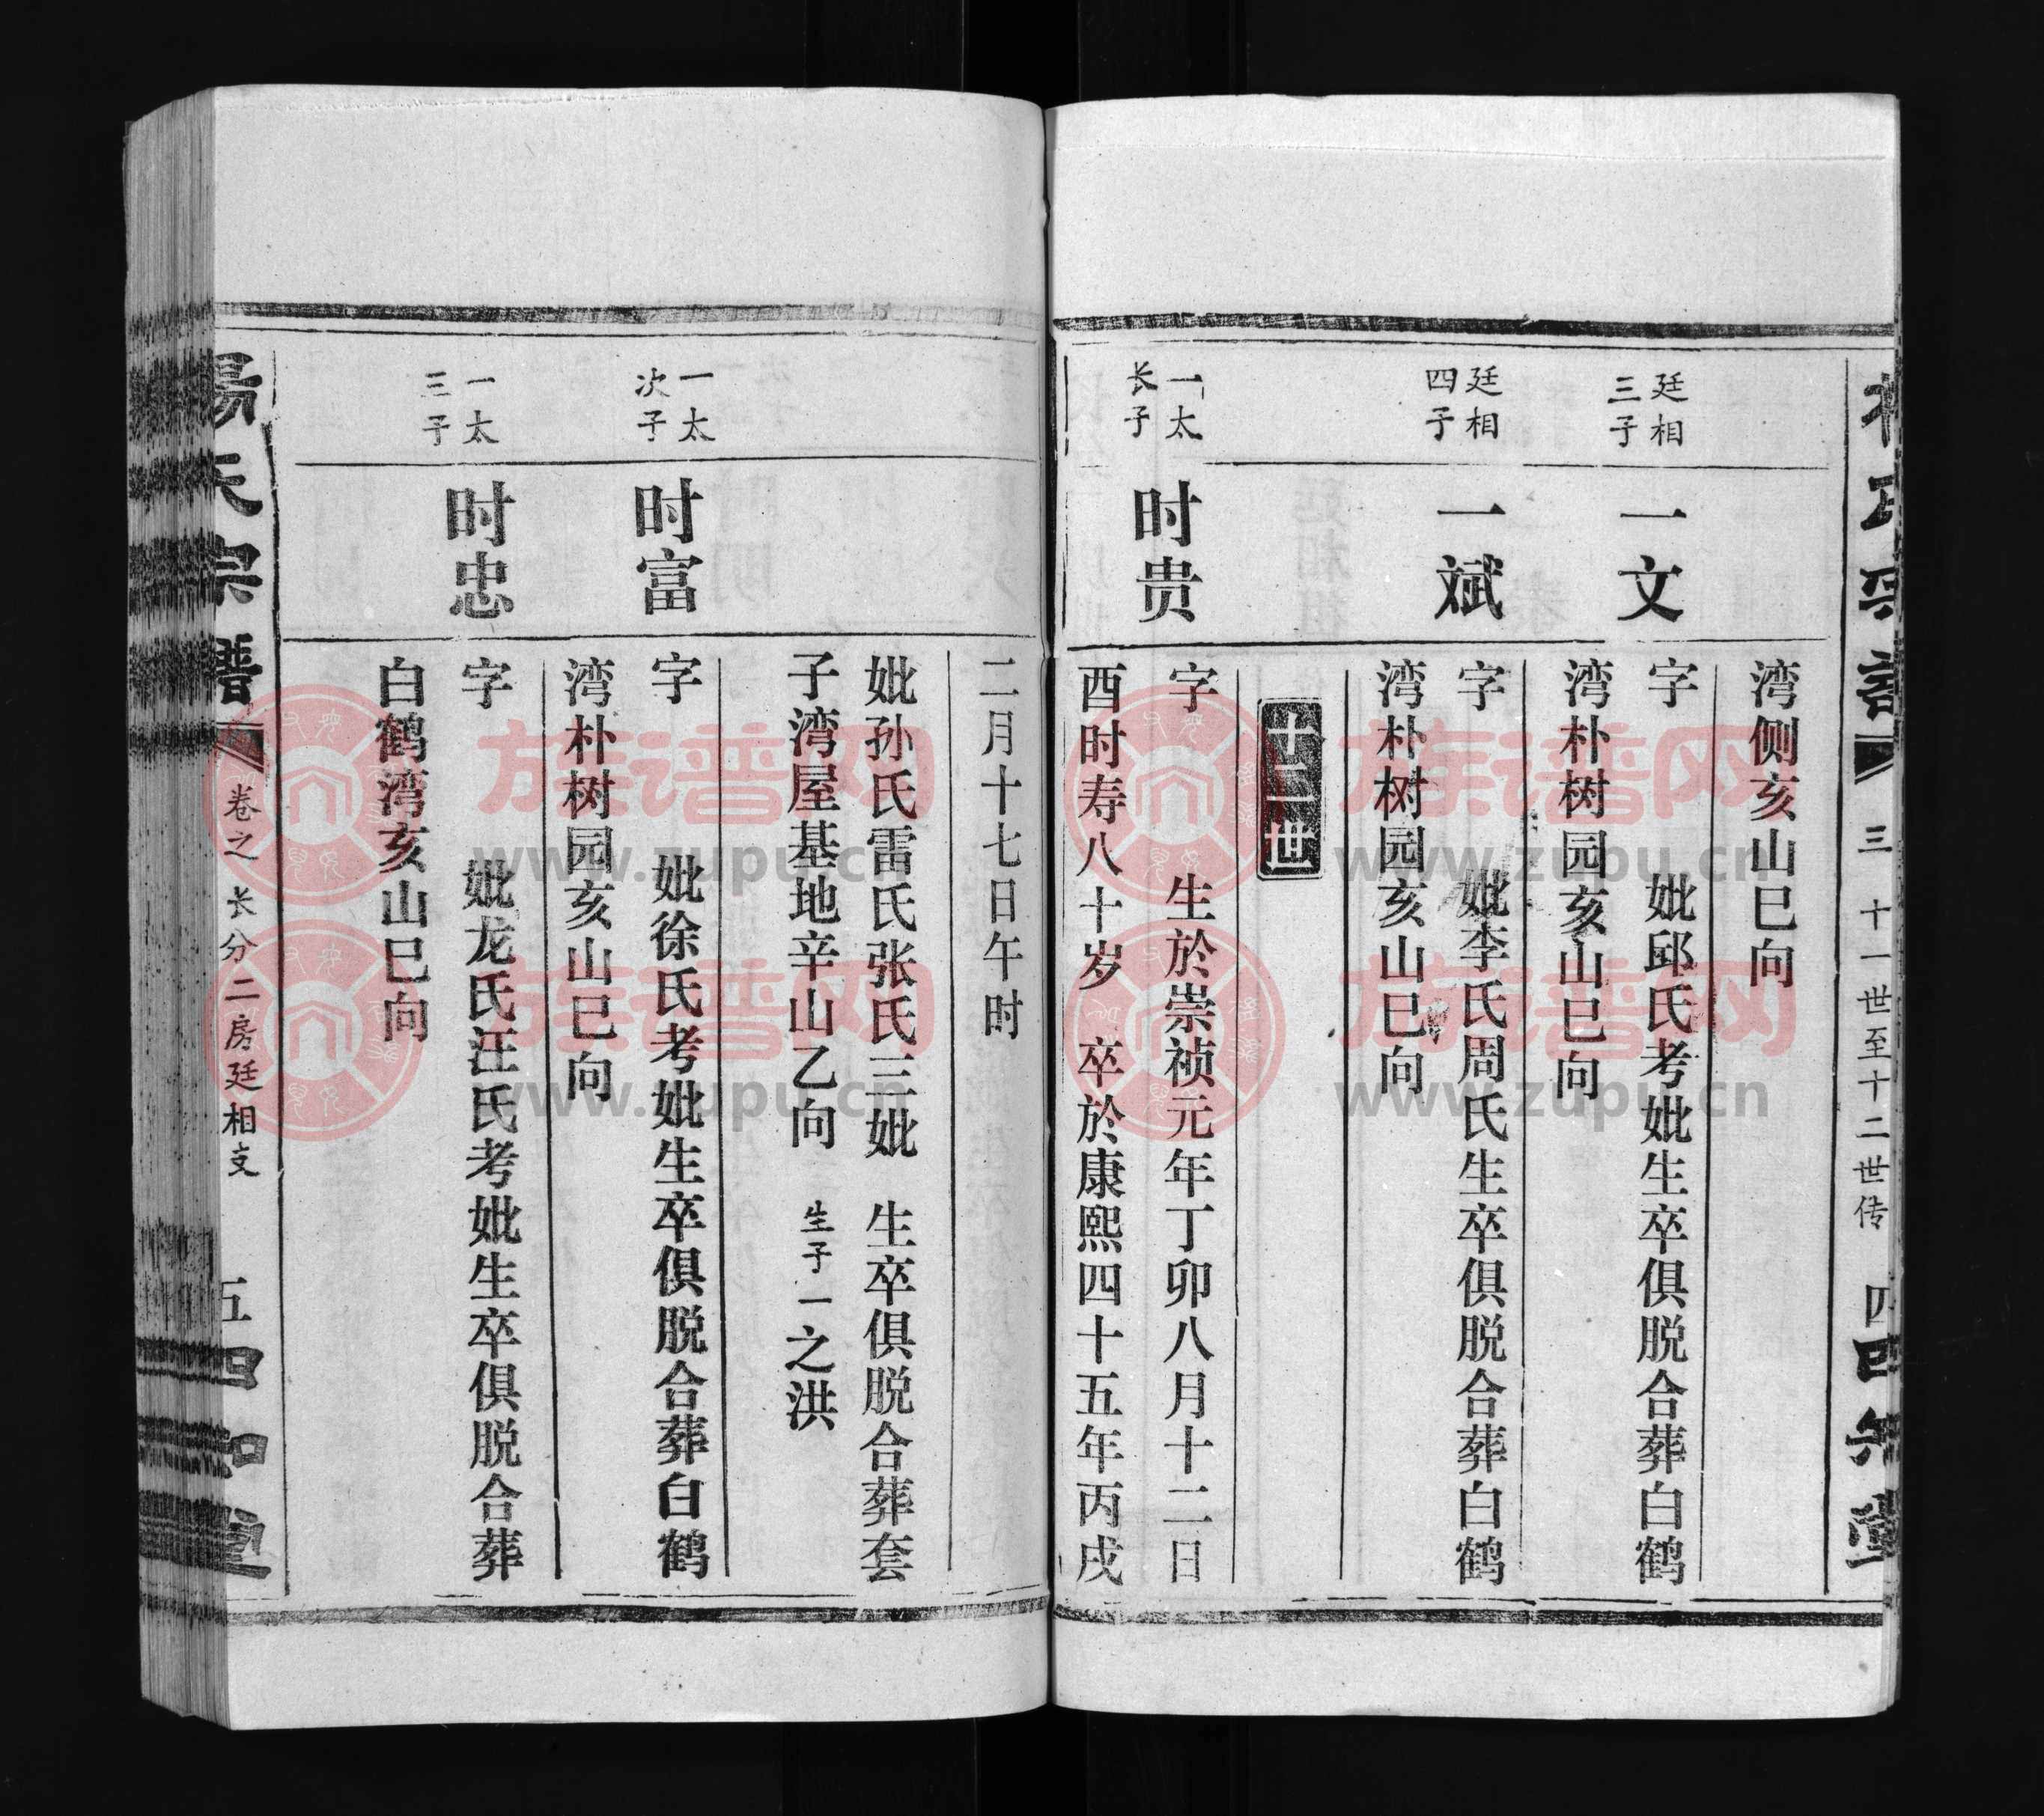 三 十一世至十二世传
四
四知堂
湾侧亥山巳向
廷相
三子
一文
字 妣邱氏考妣生卒俱脱合葬白鹤
湾朴树园亥山巳向
廷相
四子
一斌
字 妣李氏周氏生卒俱脱合葬白鹤
湾朴树园亥山巳向
十二世
一太
长子
时贵
字 生於崇祯元年丁卯八月十二日
酉时寿八十岁 卒於康熙四十五年丙戌
二月十七日午时
妣孙氏雷氏张氏三妣 生卒俱脱合葬套
子湾屋基地辛山乙向 生子一之洪
一太
次子
时富
字 妣徐氏考妣生卒俱脱合葬白鹤
湾朴树园亥山巳向
一太
三子
时忠
字 妣龙氏汪氏考妣生卒俱脱合葬
白鹤湾亥山巳向
楊氏宗譜
卷之 长分二房廷相支
五
四知堂
族谱网
www.zupu.cn
族谱网
www.zupu.cn
族谱网
www.zupu.cn
族谱网
www.zupu.cn